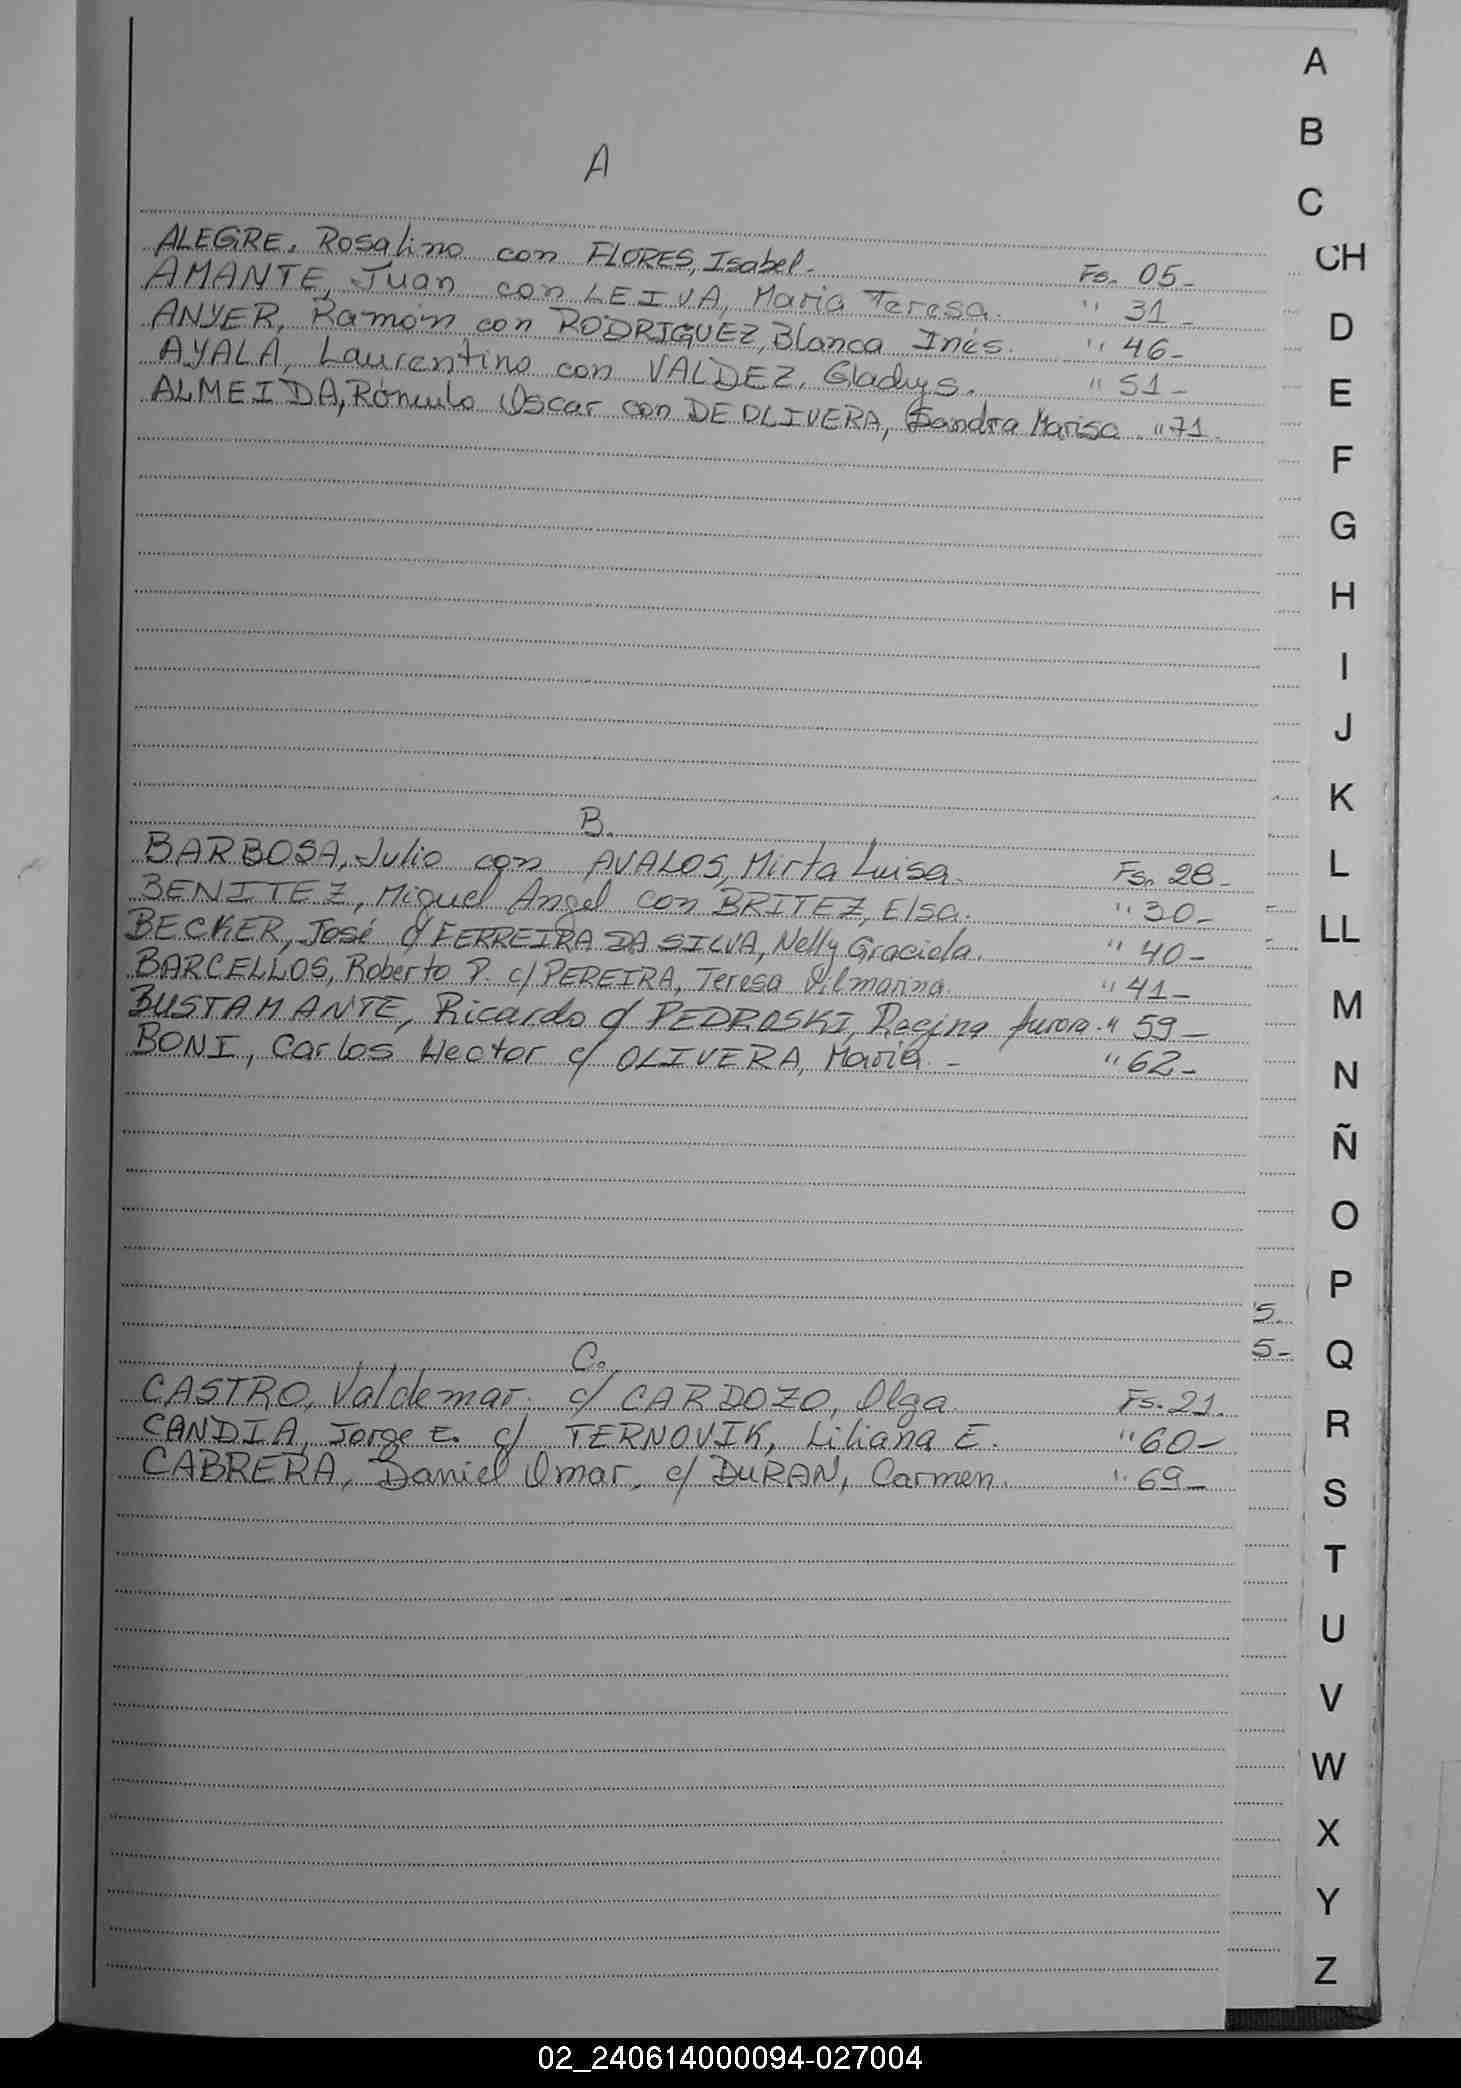 A
ALEGRE, Rosalino con FLORES, Isabel. Fs. 05-
AMANTE, Juan con LEIVA, Maria Teresa. " 31-
ANYER, Ramón con RODRIGUEZ, Blanca Inés. " 46-
AYALA, Laurentino con VALDEZ, Gladys. " 51-
ALMEIDA, Rómulo Oscar con DE OLIVERA, Sandra Marisa. " 71.
B.
BARBOSA, Julio con AVALOS, Mirta Luisa. Fs. 28-
BENITEZ, Miguel Angel con BRITEZ, Elsa. " 30-
BECKER, José c/ FERREIRA DA SILVA, Nelly Graciela. " 40-
BARCELLOS, Roberto P. c/ PEREIRA, Teresa Vilmarina. " 41-
BUSTAMANTE, Ricardo c/ PEDROSKI, Regina Aurora. " 59-
BONI, Carlos Hector c/ OLIVERA, Maria. - " 62-
5.
5-
C.
CASTRO, Valdemar. c/ CARDOZO, Olga. Fs. 21.
CANDIA, Jorge E. c/ TERNOVIK, Liliana E. " 60-
CABRERA, Daniel Omar, c/ DURAN, Carmen. " 69-
A
B
C
CH
D
E
F
G
H
I
J
K
L
LL
M
N
Ñ
O
P
Q
R
S
T
U
V
W
X
Y
Z
02_240614000094-027004